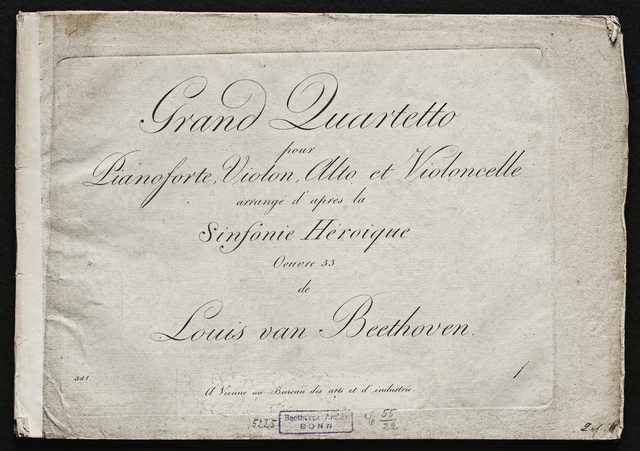 Grand Quartetto
pour
Pianoforte, Violon, Alto et Violoncelle
arrangé d'après la
Sinfonie Héroique
Oeuvre 55
de
Louis van Beethoven.
541.
A Vienne au Bureau des arts et d'industrie.
5225
Beethoven Archiv
BONN
55
22